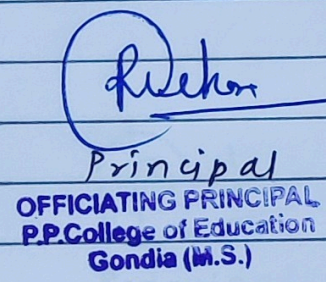 Principal
OFFICIATING PRINCIPAL
P.P.College of Education
Gondia (M.S.)